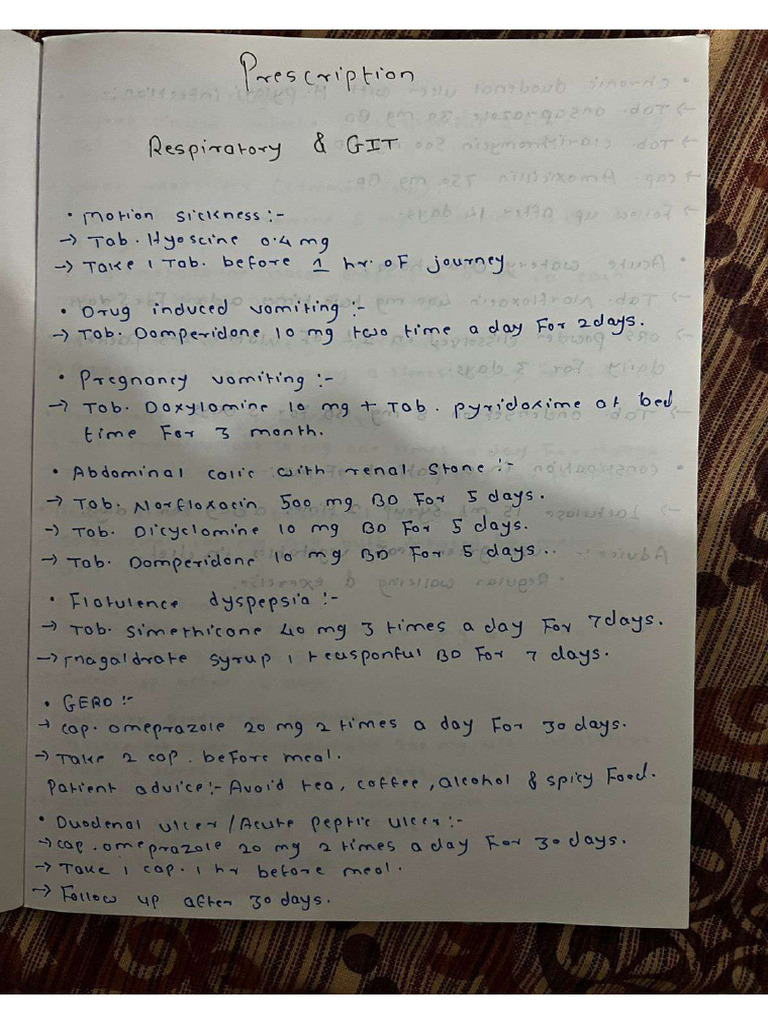 Prescription
Respiratory & GIT
• Motion sickness:-
→ Tab. Hyoscine 0.4 mg
→ Take 1 Tab. before 1 hr. of journey
• Drug induced vomiting:-
→ Tab. Domperidone 10 mg two time a day For 2 days.
• Pregnancy vomiting :-
→ Tab. Doxylamine 10 mg + Tab. pyridoxime at bed
time For 3 month.
• Abdominal colic with renal stone:-
→ Tab. Norfloxacin 500 mg BD For 5 days.
→ Tab. Dicyclomine 10 mg BD For 5 days.
→ Tab. Domperidone 10 mg BD For 5 days..
• Flatulence dyspepsia:-
→ Tab. Simethicone 40 mg 3 times a day For 7 days.
→ magaldrate syrup 1 teasponful BD For 7 days.
• GERD:-
→ cap. omeprazole 20 mg 2 times a day For 30 days.
→ Take 2 cap. before meal.
Patient advice:- Avoid tea, coffee, alcohol & spicy Food.
• Duodenal ulcer/Acute peptic ulcer:-
→ cap. omeprazole 20 mg 2 times a day For 30 days.
→ Take 1 cap. 1 hr before meal.
→ Follow up after 30 days.